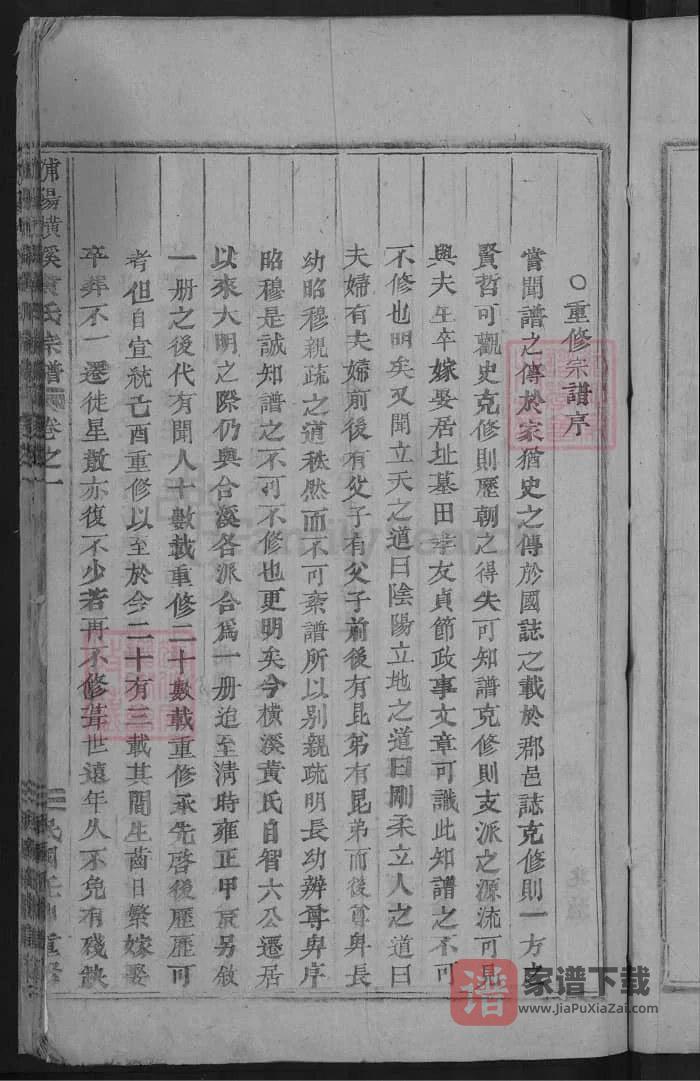 ○重修宗譜序
嘗聞譜之傳於家猶史之傳於國誌之載於郡邑誌克修則一方之
賢哲可觀史克修則歷朝之得失可知譜克修則支派之源流可見
與夫生卒嫁娶居址墓田孝友貞節政事文章可識此知譜之不可
不修也明矣又聞立天之道曰陰陽立地之道曰剛柔立人之道曰
夫婦有夫婦前後有父子有父子前後有昆弟有昆弟而後尊卑長
幼昭穆親疏之道秩然而不可紊譜所以別親疏明長幼辨尊卑序
昭穆是誠知譜之不可不修也更明矣今橫溪黃氏自智六公遷居
以來大明之際仍與合溪各派合為一册迨至清時雍正甲寅另敘
一册之後代有聞人十數載重修二十數載重修承先啓後歷歷可
考但自宣統己酉重修以至於今二十有三載其間生齒日繁嫁娶
卒葬不一遷徒星散亦復不少若再不修葺世遠年久不免有殘缺
浦陽橫溪黃氏宗譜 卷之一 民國壬申重修
家谱下载
www.JiaPuXiaZai.com
谱